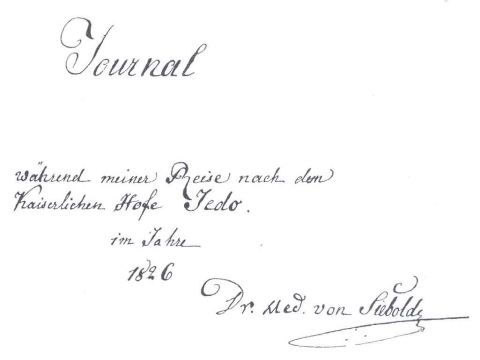 Journal
während meiner Reise nach dem
Kaiserlichen Hofe Jedo.
im Jahre
1826
Dr. Med. von Siebold